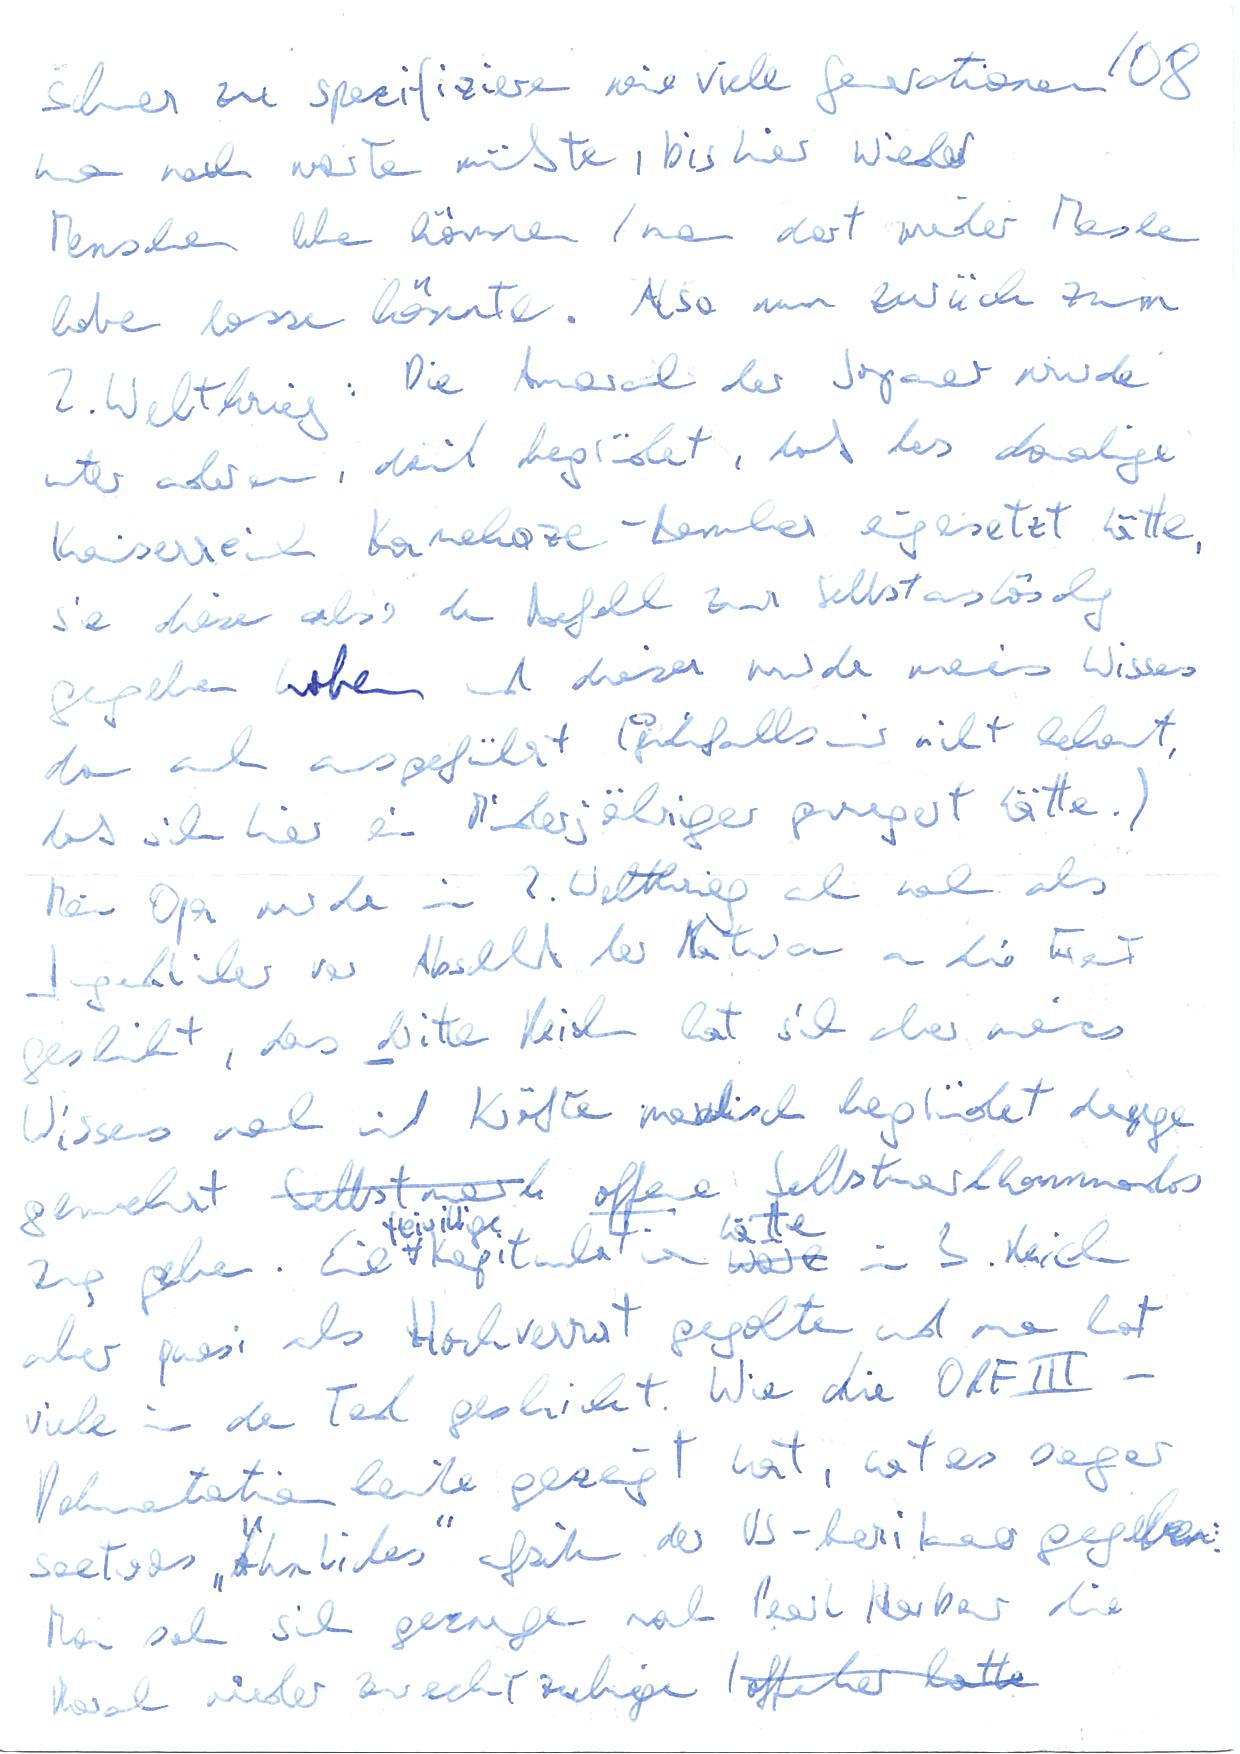 schwer zu spezifizieren wie viele Generationen /08
man noch warten müßte, bis hier wieder
Menschen leben können / man dort wieder Menschen
leben lassen könnte. Also nun zurück zum
2. Weltkrieg: Die Amoral der Japaner wurde
unter anderem, damit begründet, daß das damalige
Kaiserreich Kamekaze-Bomber eingesetzt hätte,
sie diesen also den Befehl zur Selbstauslöschung
gegeben haben und dieser wurde meines Wissens
dann auch ausgeführt (Jedenfalls mir nicht bekannt,
daß sich hier ein Minderjähriger geweigert hätte.)
Mein Opa wurde im 2. Weltkrieg auch noch als
Jugendlicher vor Abschluß der Matura an die Front
geschickt, das dritte Reich hat sich aber meines
Wissens nach mit Kräften moralisch begründet dagegen
gewehrt Selbstmord offene Selbstmordkommandos
zu geben. Eine freiwillige Kapitulation hätte wäre im 3. Reich
aber quasi als Hochverrat gegolten und man hat
viele in den Tod geschickt. Wie die ORF III -
Dokumentation heute gezeigt hat, hat es sogar
soetwas „Ähnliches" der US-Amerikaner gegeben:
Man sah sich gezwungen nach Pearl Harbour die
Moral wieder zurechtzubiegen hatte